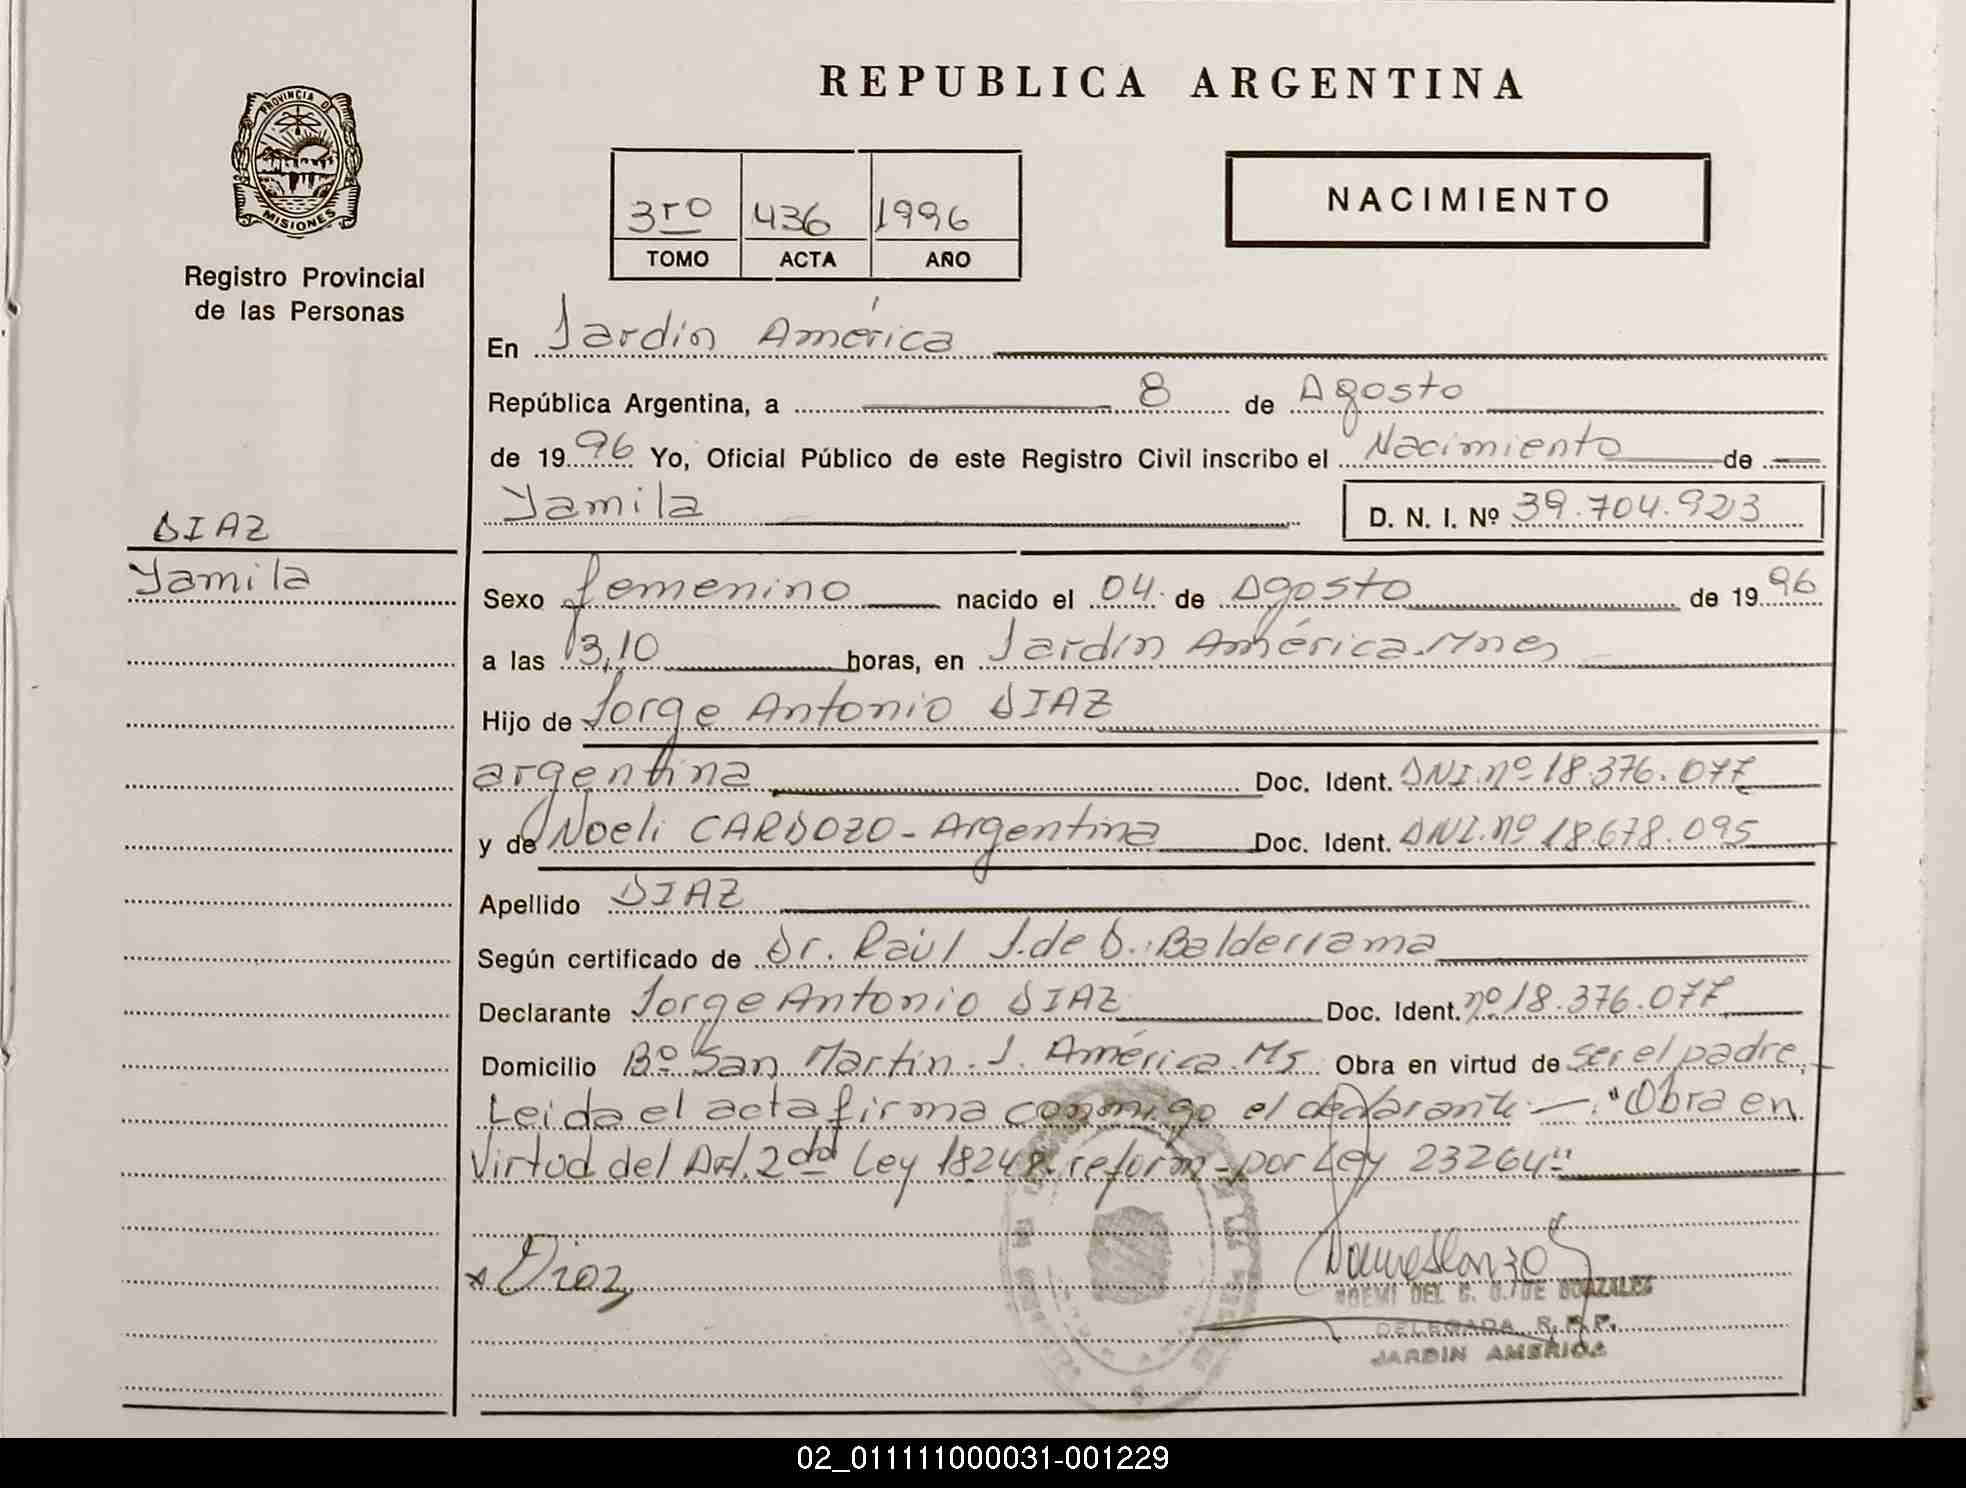 REPUBLICA ARGENTINA
PROVINCIA DE
MISIONES
Registro Provincial
de las Personas
3ro 436 1996
TOMO ACTA AÑO
NACIMIENTO
En Jardín América
República Argentina, a 8 de Agosto
de 1996 Yo, Oficial Público de este Registro Civil inscribo el Nacimiento de
Yamila D. N. I. Nº 39.704.923
DIAZ
Yamila
Sexo femenino nacido el 04 de Agosto de 1996
a las 13,10 horas, en Jardín América. Mnes
Hijo de Jorge Antonio DIAZ
argentina Doc. Ident. DNI. nº 18.376.077
y de Noeli CARDOZO - Argentina Doc. Ident. DNI. nº 18.678.095
Apellido DIAZ
Según certificado de Dr. Raúl J. de D. Balderrama
Declarante Jorge Antonio DIAZ Doc. Ident. nº 18.376.077
Domicilio Bº San Martín. J. América. Ms Obra en virtud de ser el padre
Leida el acta firma conmigo el declarante —. "Obra en
Virtud del Art. 2do Ley 18248. reform - por Ley 23264"
Diaz
NOEMI DEL C. DE GONZALES
DELEGADA R.P.P.
JARDIN AMERICA
02_011111000031-001229